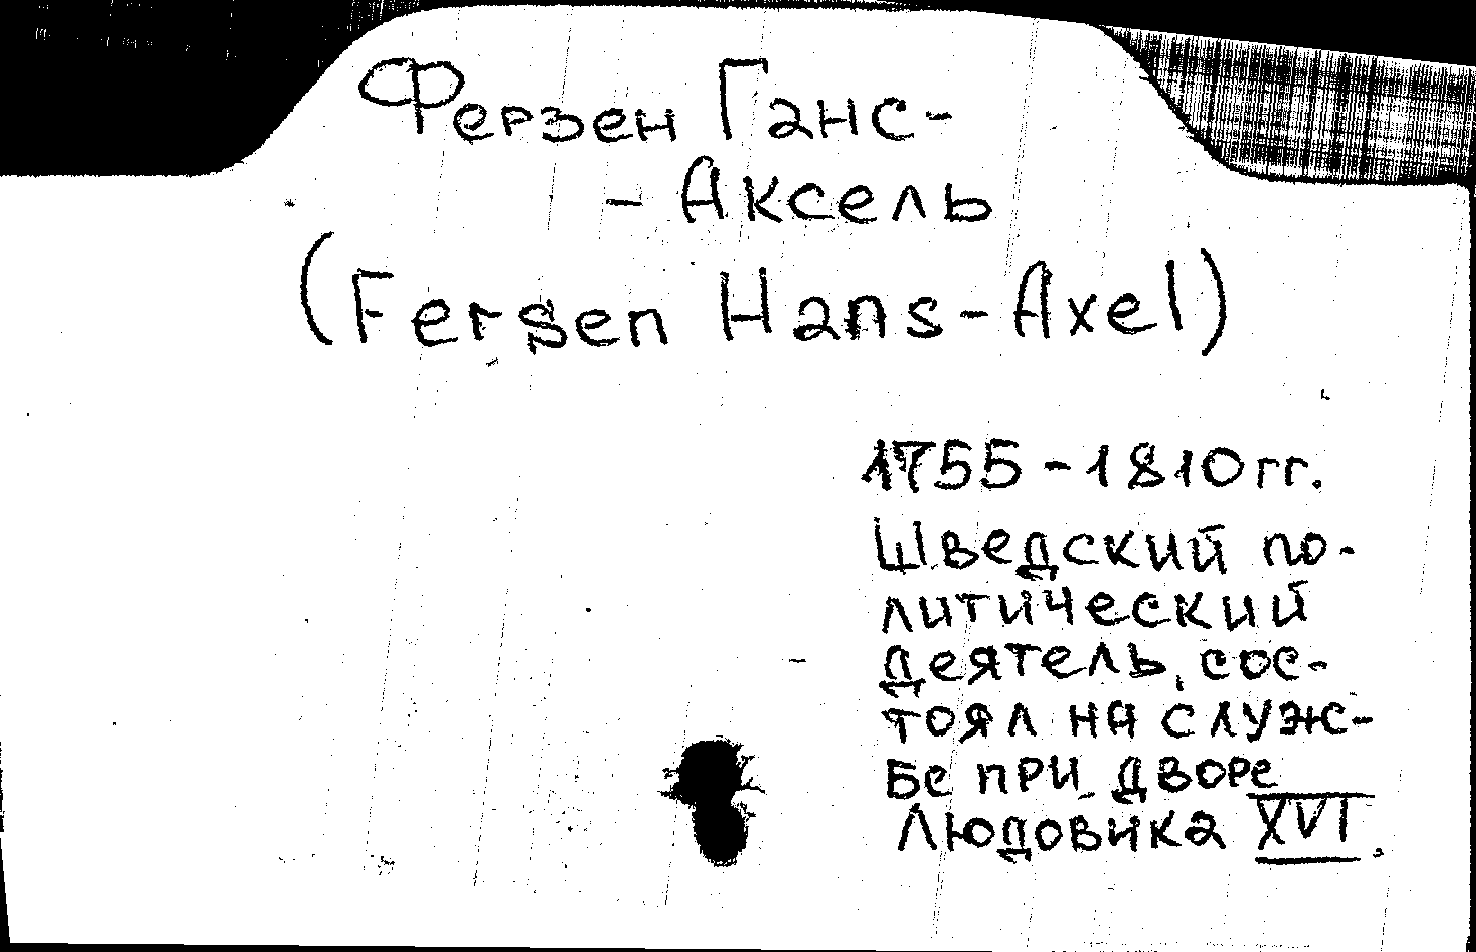 Ферзен Ганс-
- Аксель
(Fersen Hans-Axel)
1755-1810 гг.
Шведский по-
литический
деятель, сос-
тоял на служ-
бе при дворе
Людовика XVI.